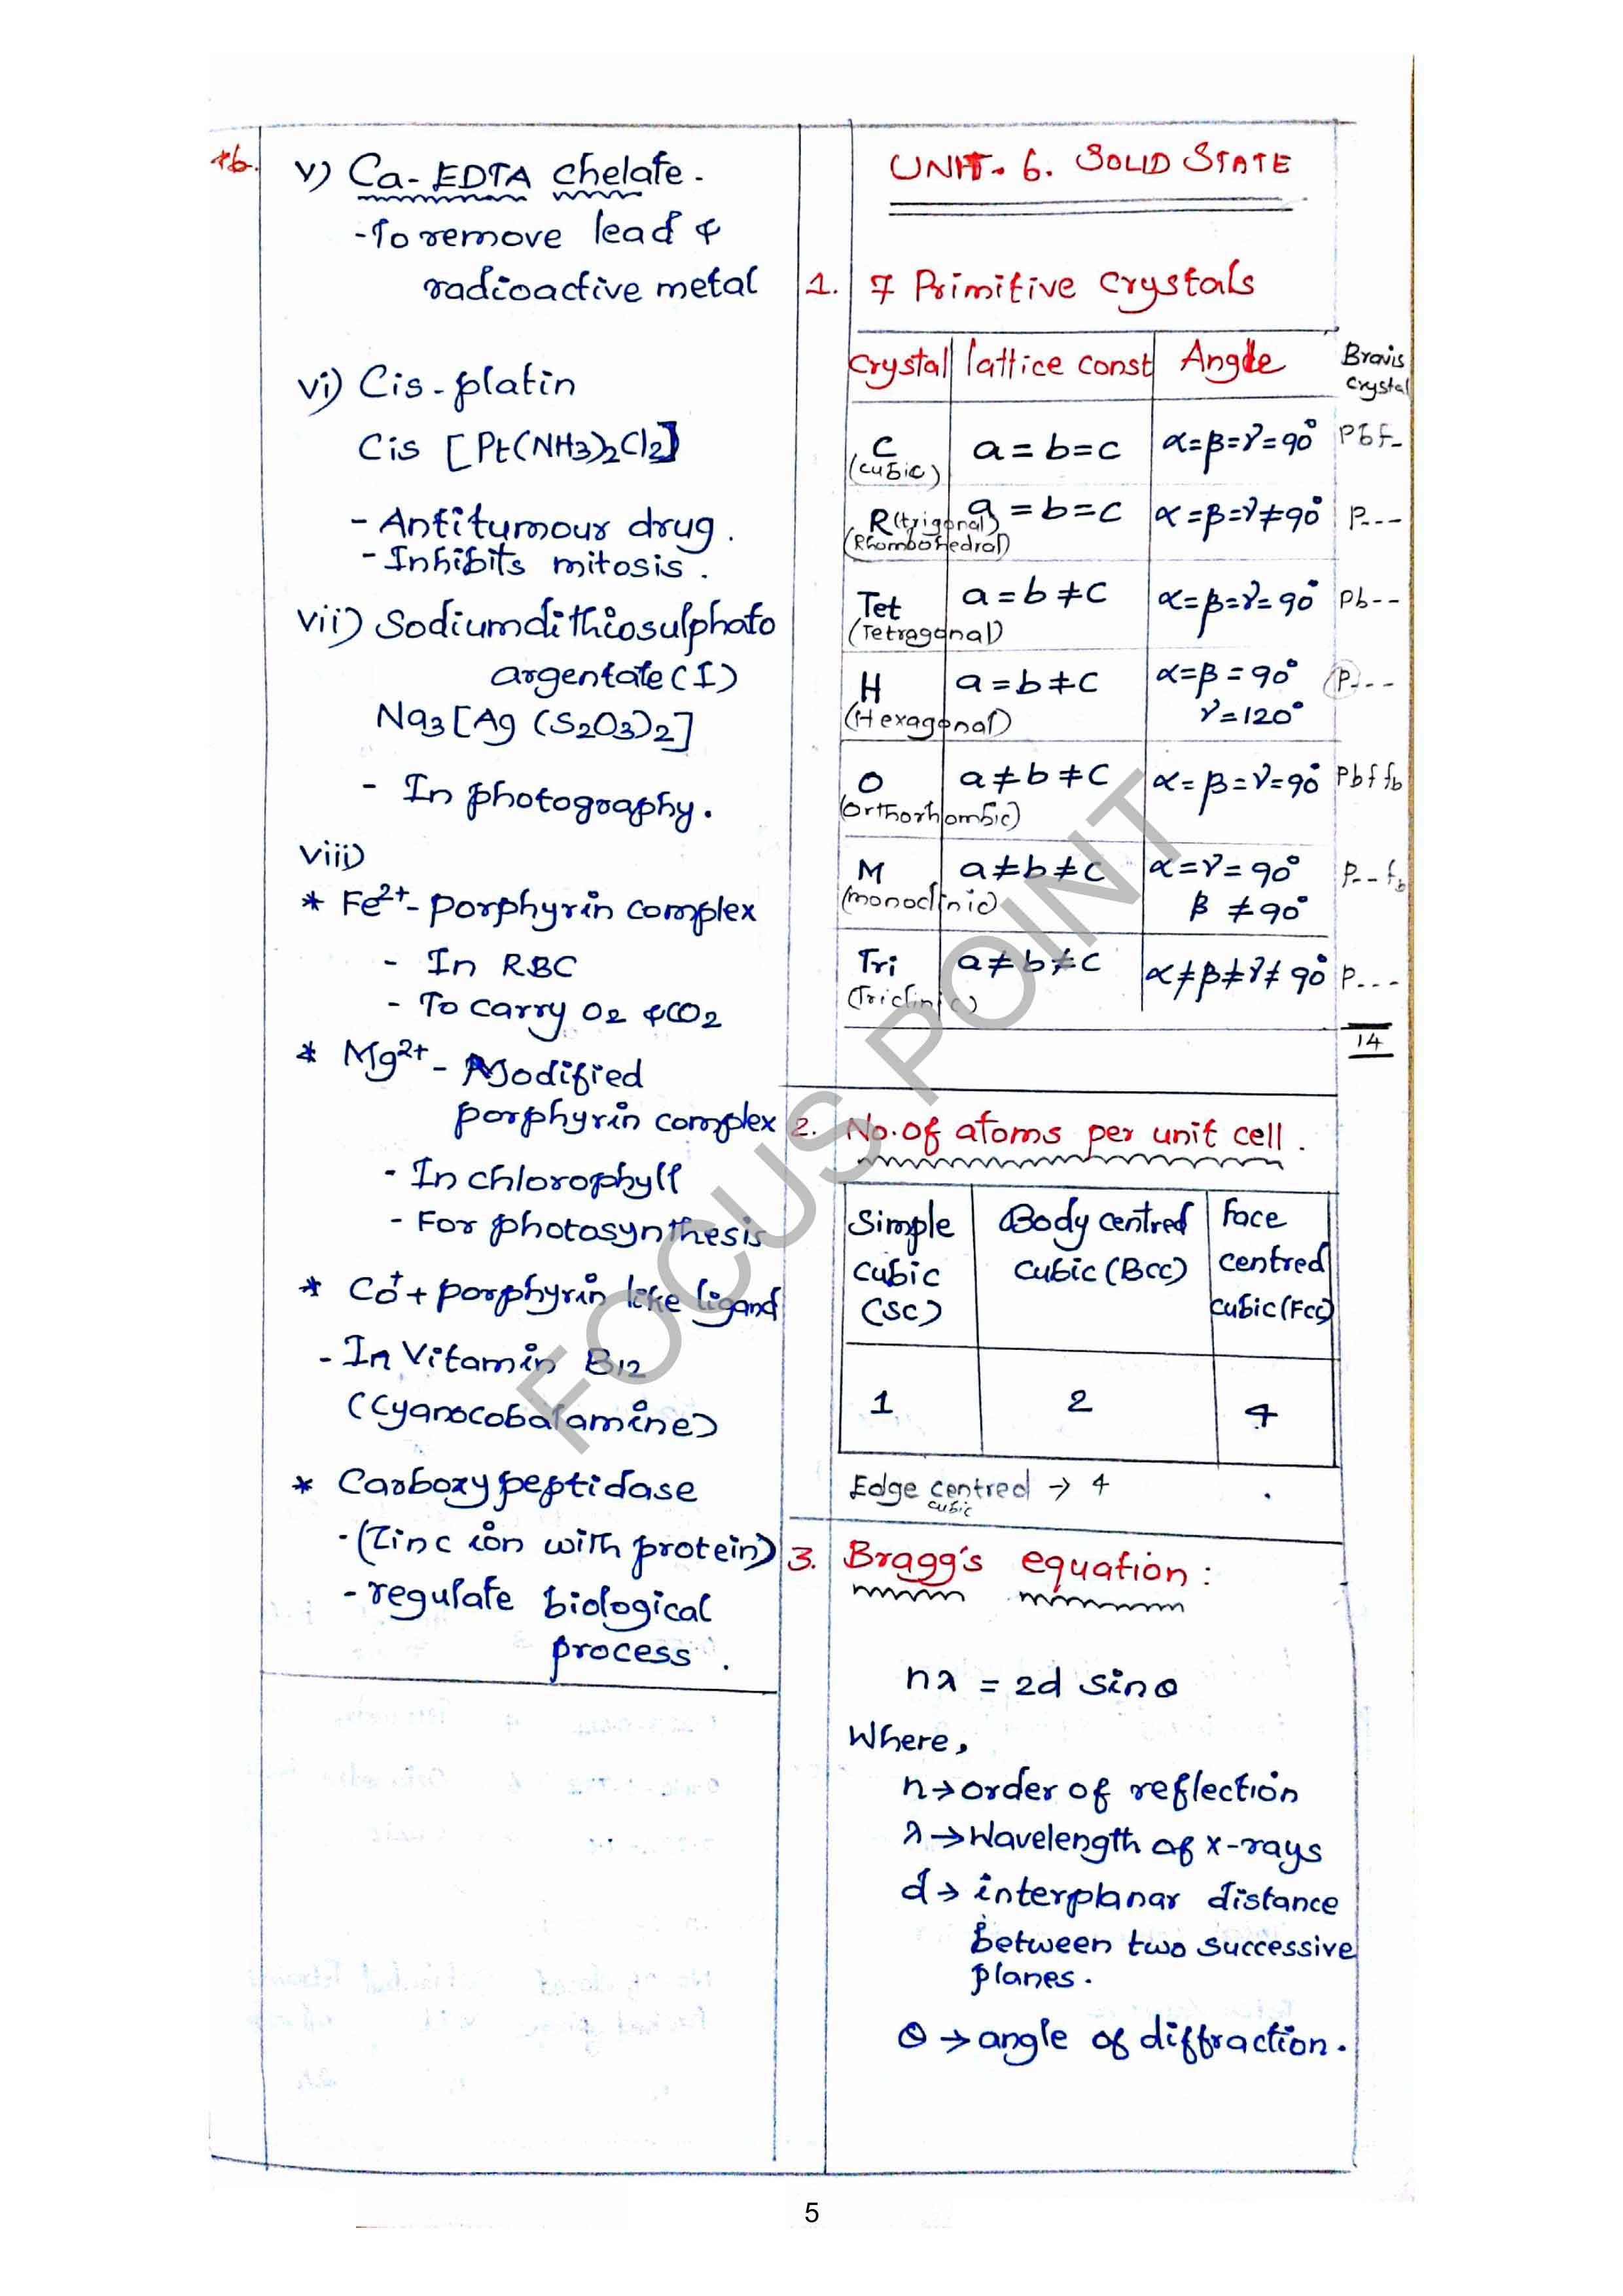 16.
v) Ca-EDTA chelate.
-To remove lead &
radioactive metal
vi) Cis-platin
Cis [Pt(NH3)2Cl2]
- Antitumour drug.
- Inhibits mitosis.
vii) Sodiumdithiosulphato
argentate(I)
Na3[Ag (S2O3)2]
- In photography.
viii)
* Fe2+- porphyrin complex
- In RBC
- To carry O2 & CO2
* Mg2+ - Modified
porphyrin complex
- In chlorophyll
- For photosynthesis
* Co+ + porphyrin like ligand
- In Vitamin B12
(Cyanocobalamine)
* Carboxypeptidase
- (Zinc ion with protein)
- regulate biological
process.
UNIT. 6. SOLID STATE
1. 7 Primitive crystals
Crystal lattice const Angle Bravis crystal
C (cubic) a = b = c α=β=γ=90° Pbf-
R(trigonal) (Rhombohedral) a = b = c α=β=γ≠90° P---
Tet (Tetragonal) a = b ≠ c α=β=γ=90° Pb--
H (Hexagonal) a = b ≠ c α=β=90° γ=120° P---
O (Orthorhombic) a ≠ b ≠ c α=β=γ=90° Pbf fb
M (monoclinic) a ≠ b ≠ c α=γ=90° β ≠ 90° P--fb
Tri (Triclinic) a ≠ b ≠ c α≠β≠γ≠90° P---
14
2. No. of atoms per unit cell.
Simple cubic (SC) Body centred cubic (BCC) Face centred cubic (FCC)
1 2 4
Edge centred cubic → 4
3. Bragg's equation:
nλ = 2d sinθ
Where,
n→order of reflection
λ→Wavelength of x-rays
d→ interplanar distance
between two successive
planes.
θ → angle of diffraction.
FOCUS POINT
5